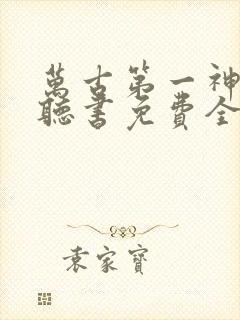 萬古第一神
聽書免費全
袁家寶